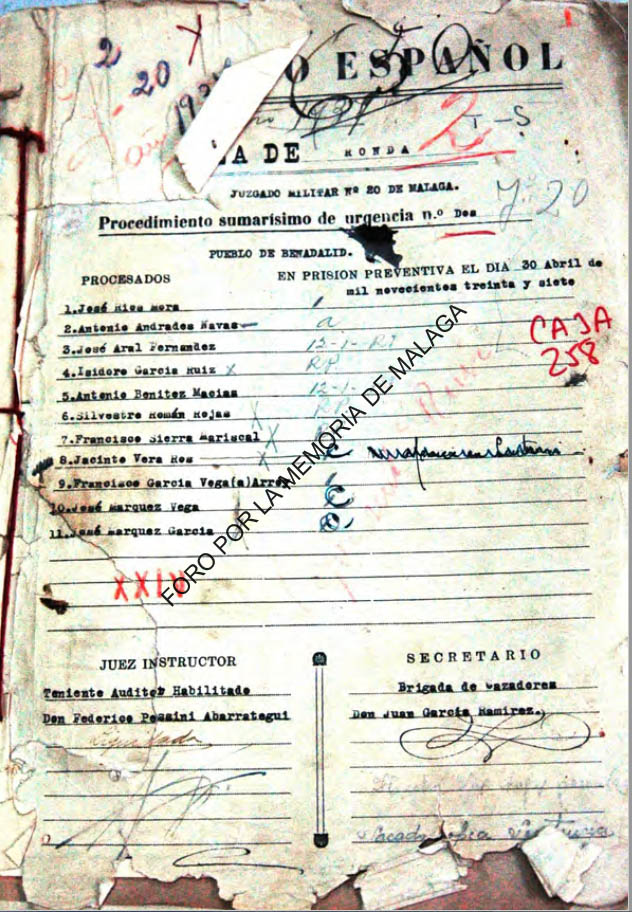 2
20
O ESPAÑOL
2 T-S
A DE RONDA
JUZGADO MILITAR Nº 20 DE MALAGA.
Procedimiento sumarísimo de urgencia n.º Dos
20
PUEBLO DE BENADALID.
PROCESADOS
EN PRISION PREVENTIVA EL DIA 30 Abril de
mil novecientos treinta y siete
1.José Rios Mora
2.Antonio Andrades Navas
3.José Aral Fernandez 12-1-
4.Isidoro Garcia Ruiz X RP
5.Antonio Benitez Macias 12-1-
6.Silvestre Román Rojas
7.Francisco Sierra Mariscal
8.Jacinto Vera Ros
9.Francisco Garcia Vega(a)Arro
10.José Marquez Vega
11.José Marquez Garcia
CAJA
258
XXIV
FORO POR LA MEMORIA DE MALAGA
JUEZ INSTRUCTOR
Teniente Auditor Habilitado
Don Federico Pessini Abarrategui
SECRETARIO
Brigada de Cazadores
Don Juan García Ramirez.